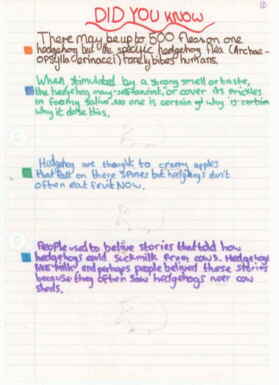 DID YOU KNOW
There may be up to 500 fleas on one
hedgehog but the specific hedgehog flea (Archae-
opsylla erinacei) rarely bites humans.
When stimulated by a strong smell or taste,
the hedgehog may self-anoint, or cover its prickles
in foamy saliva. no one is certain of why is certain
why it dose this.
Hedgehog are thought to crarry apples
that fall on there spines but hedgehogs don't
often eat fruit NOW.
People used to belive stories that told how
hedgehogs could suck milk from cows. Hedgehog
like milk, and perhaps people belived these stories
because they often saw hedgehogs near cow
sheds.